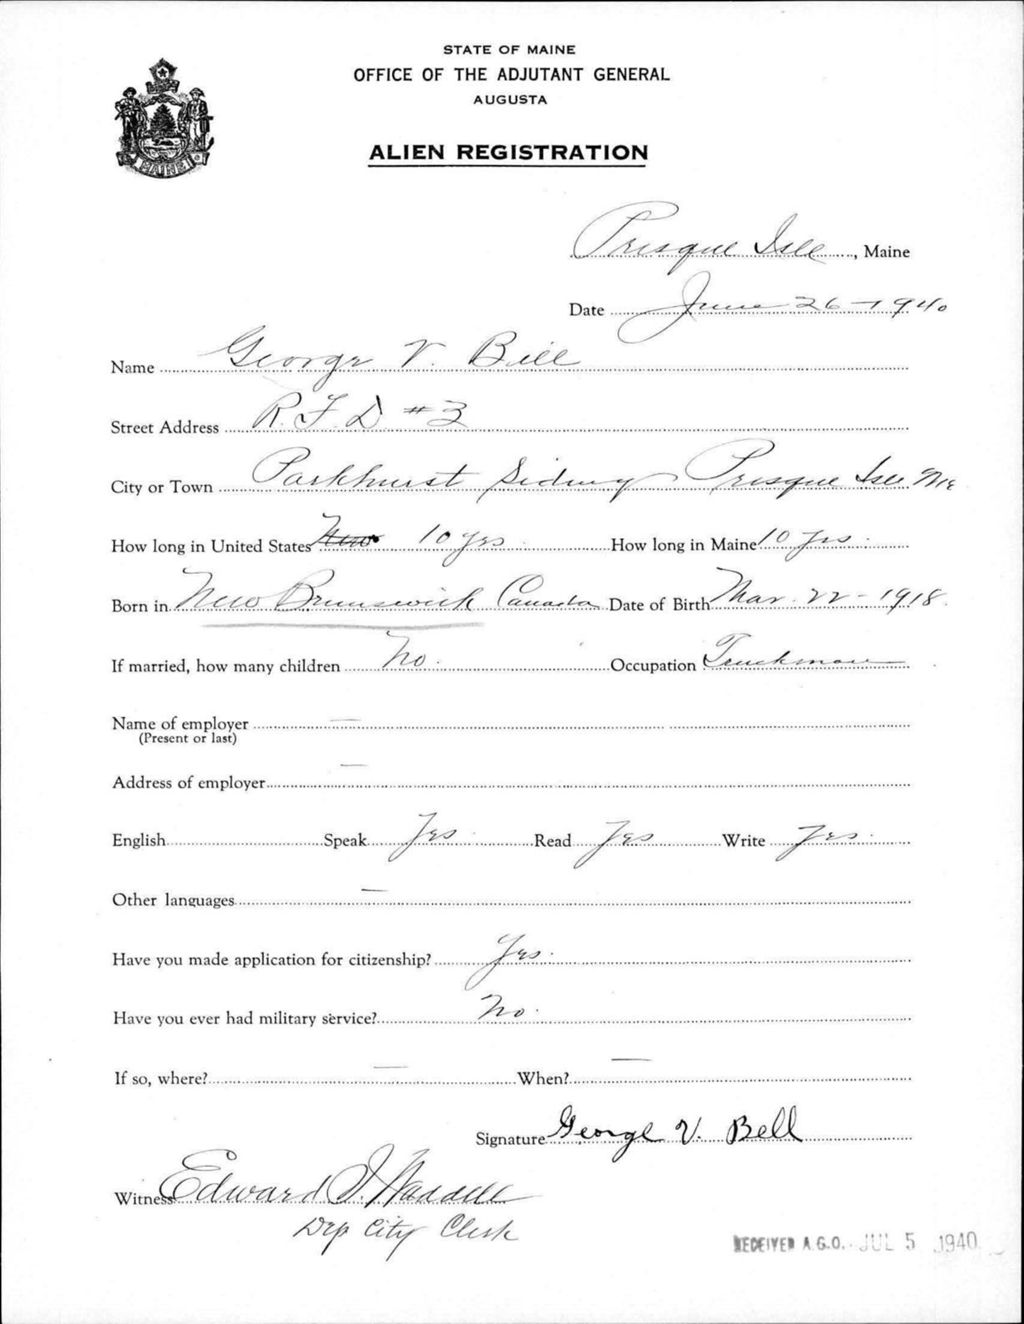 STATE OF MAINE
OFFICE OF THE ADJUTANT GENERAL
AUGUSTA
ALIEN REGISTRATION
MAINE
Presque Isle, Maine
Date June 26-1940
Name George V. Bell
Street Address R.F.D #3
City or Town Parkhurst Siding Presque Isle Me
How long in United States 10 yrs How long in Maine 10 yrs.
Born in New Brunswick Canada Date of Birth Mar. 22-1918.
If married, how many children No. Occupation Truckman
Name of employer —
(Present or last)
Address of employer —
English Speak Yes Read Yes Write Yes.
Other languages —
Have you made application for citizenship? Yes.
Have you ever had military service? No.
If so, where? — When? —
Signature George V. Bell
Witness Edward
Dep City Clerk
RECEIVED A.G.O. JUL 5 1940